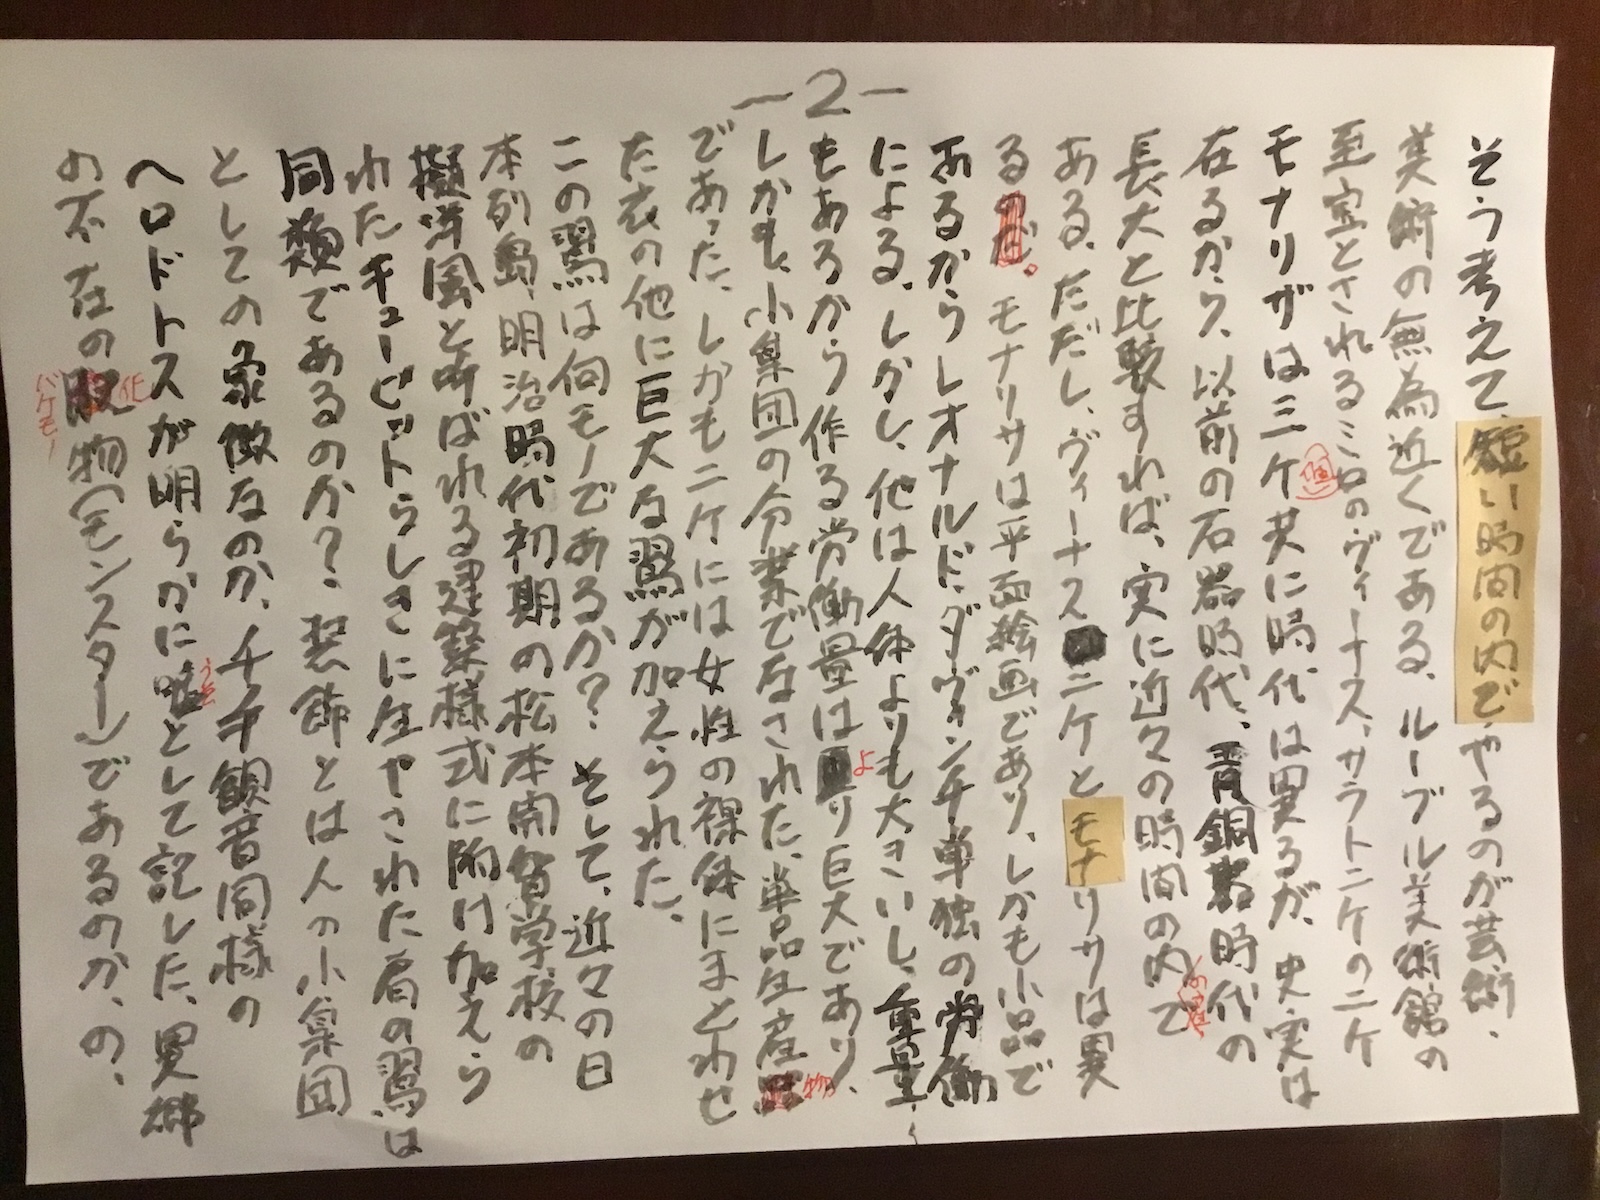 -2-
そう考えて、短い時間の内でやるのが芸術、
美術の無為近くである、ルーブル美術館の
至宝とされるミロのヴィーナス、サラトニケのニケ
モナリザは三ケ(個)共に時代は異るが、史実は
在るから、以前の石器時代、青銅器時代の
長大と比較すれば、実に近々の時間の内で
ある、ただし、ヴィーナス ニケとモナリサは異
る。モナリサは平面絵画であり、しかも小品で
あるからレオナルド・ダヴィンチ単独の労働
による、しかし、他は人体よりも大きいし、重量
もあろから作る労働量はより巨大であり、
しかも、小集団の分業でなされた、単品生産物
であった、しかもニケには女性の裸体にまとわせ
た衣の他に巨大な翼が加えられた、
この翼は何モノであるか? そして、近々の日
本列島、明治時代初期の松本開智学校の
擬洋風と呼ばれる建築様式に附け加えら
れたキューピットらしきに生やされた肩の翼は
同類であるのか? 装飾とは人の小集団
としての象徴なのか、千手観音同様の
ヘロドトスが明らかに嘘うそとして記した、異郷
の不在の化物バケモノ(モンスター)であるのか、の、